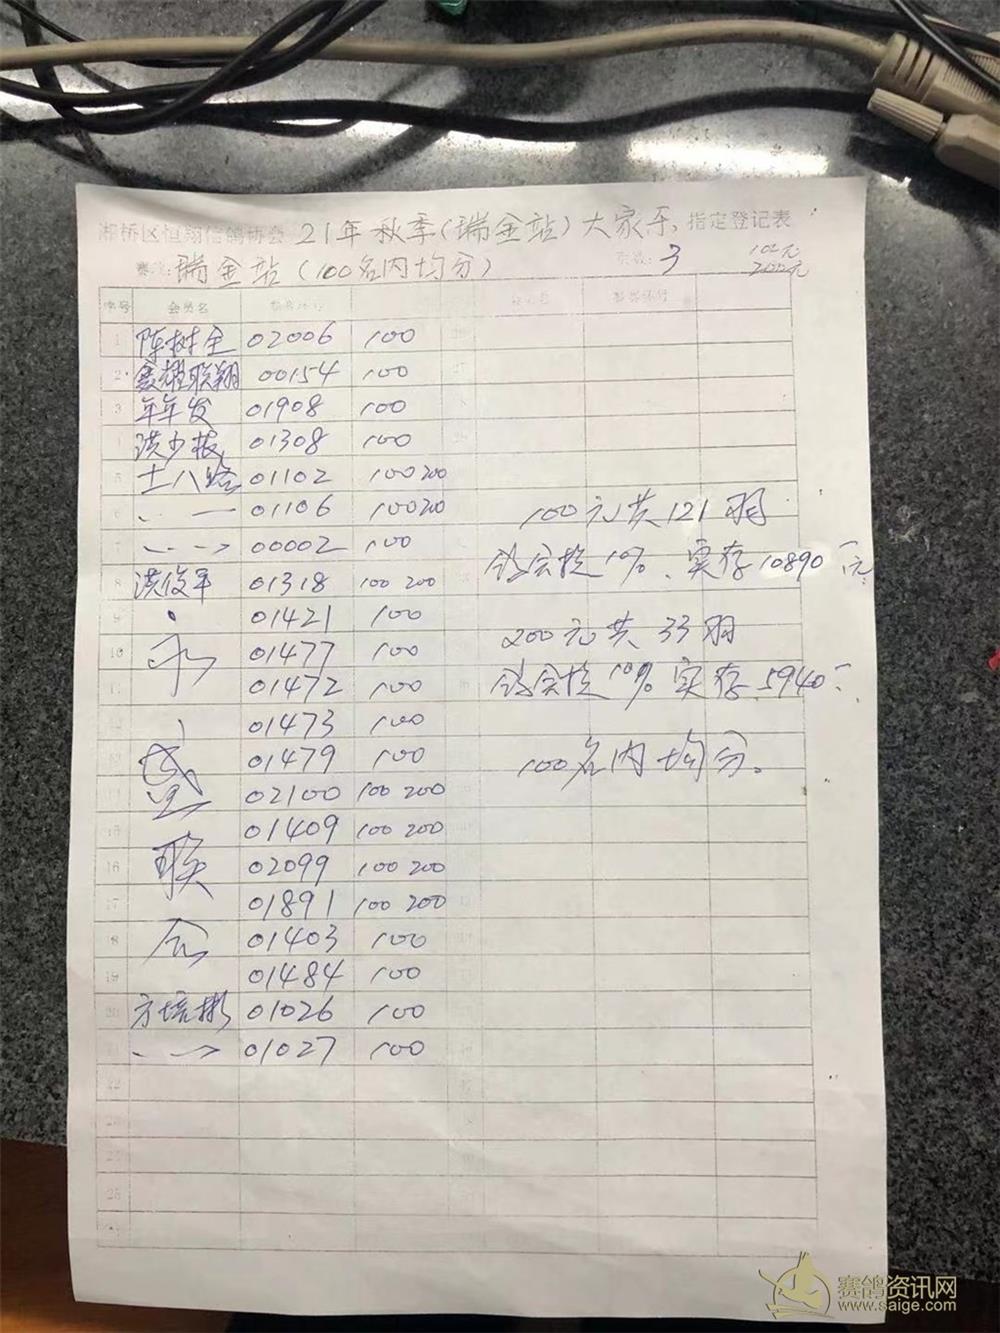 湘桥区恒翔信鸽协会 21年秋季(瑞金站)大家乐 指定登记表
赛 : 瑞金站(100名内均分) 页数: 3 100元
200元
序号 会员名
1 陈树全 02006 100
2 展耀联翔 00154 100
3 年年发 01908 100
洪少 01308 100
5 十八路 01102 100 200
6 01106 100 200
7 00002 100
8 洪俊军 01318 100 200
9 01421 100
10 01477 100
01472 100
01473 100
01479 100
盛 02100 100 200
15 01409 100 200
16 联 02099 100 200
17 01891 100 200
18 会 01403 100
19 01484 100
20 方培彬 01026 100
01027 100
22
25
100元共121羽
协会提10%、实存10890元
200元共33羽
协会提10% 实存5940元
100名内均分。
赛鸽资讯网
www.saige.com